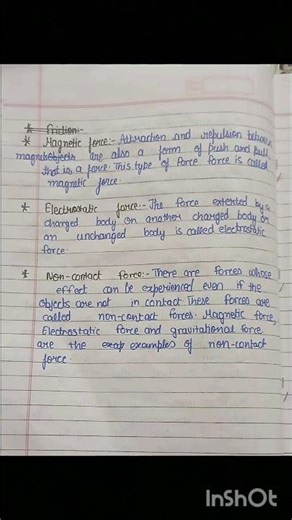 * Friction:-
* Magnetic force:- Attraction and repulsion between
magnetobjects are also a form of push and pull
that is a force. This type of Force force is called
magnetic force.
* Electrostatic force:- The force exterted by a
charged body on another charged body or
an unchanged body is called electrostatic
force.
* Non-contact force:- There are forces whose
effect can be experienced even if the
objects are not in contact. These forces are
called non-contact forces. Magnetic force,
Electrostatic force and gravitational force
are the exap examples of non-contact
force.
InShOt